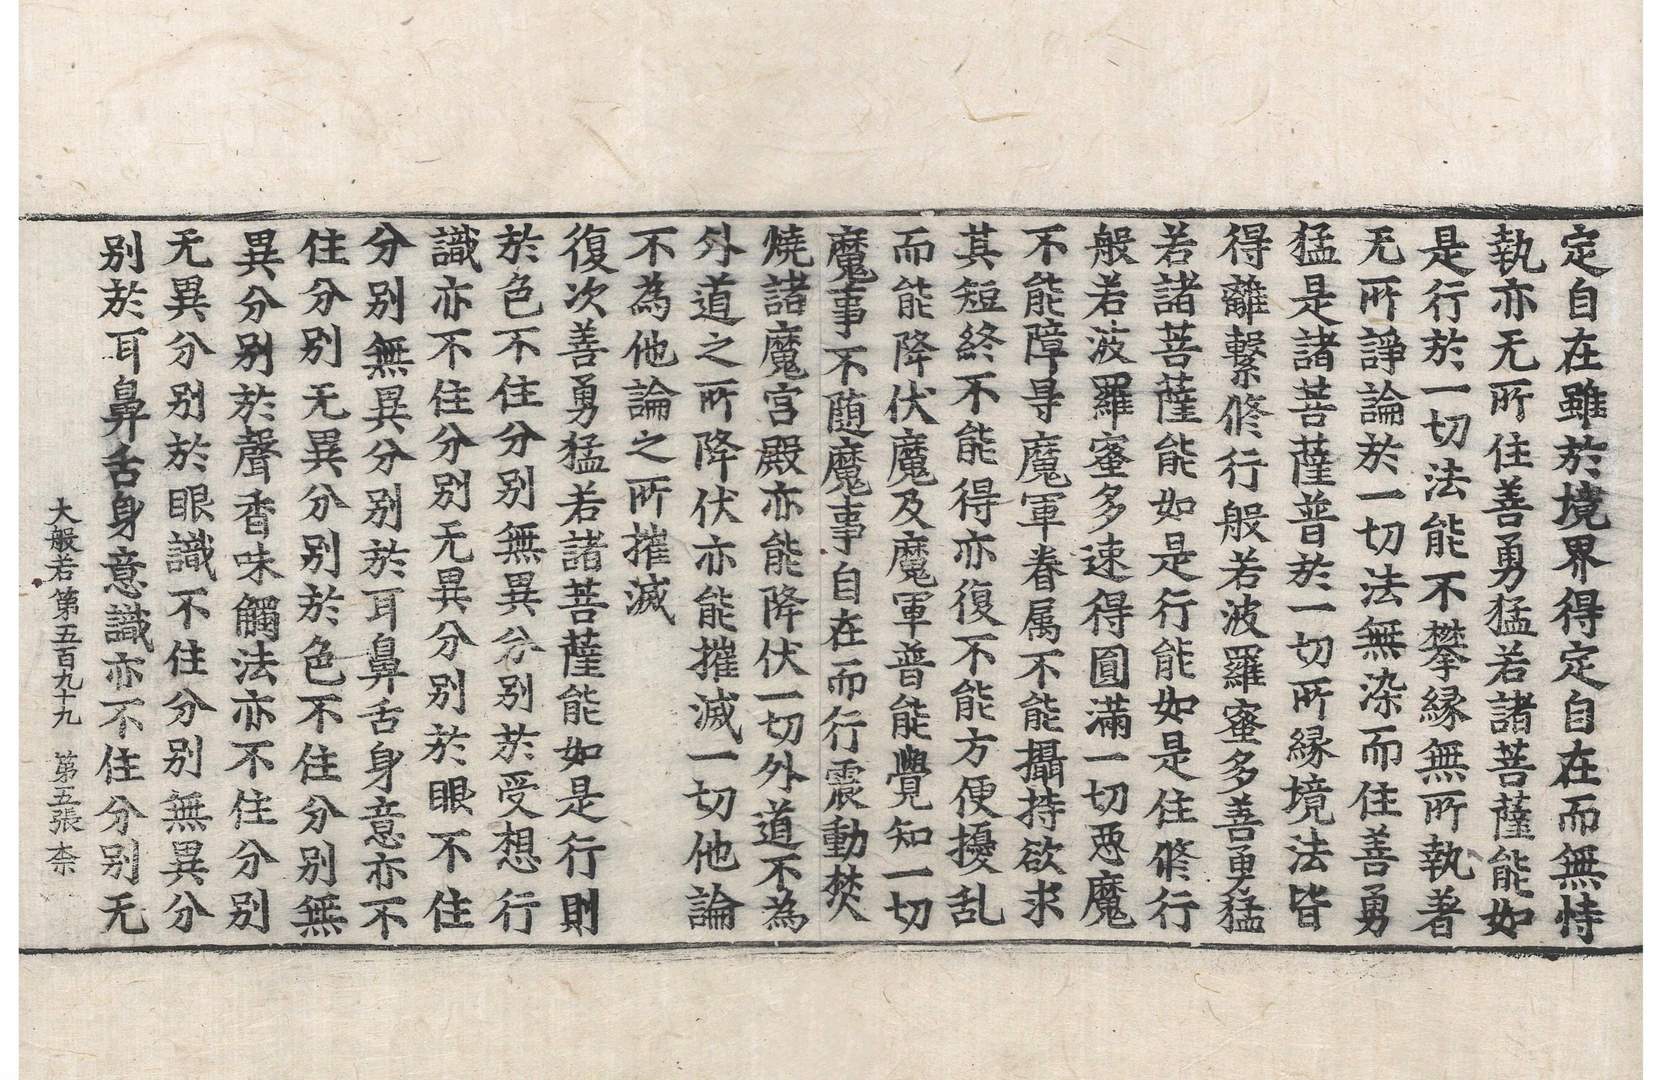 定自在雖於境界得定自在而無恃
執亦无所住善勇猛若諸菩薩能如
是行於一切法能不攀緣無所執著
无所諍論於一切法無染而住善勇
猛是諸菩薩普於一切所緣境法皆
得離繫修行般若波羅蜜多善勇猛
若諸菩薩能如是行能如是住修行
般若波羅蜜多速得圓滿一切惡魔
不能障㝵魔軍眷属不能攝持欲求
其短終不能得亦復不能方便擾乱
而能降伏魔及魔軍普能覺知一切
魔事不随魔事自在而行震動焚
燒諸魔宮殿亦能降伏一切外道不為
外道之所降伏亦能摧滅一切他論
不為他論之所摧滅
復次善勇猛若諸菩薩能如是行則
於色不住分别無異分别於受想行
識亦不住分别无異分别於眼不住
分别無異分别於耳鼻舌身意亦不
住分别无異分别於色不住分别無
異分别於聲香味觸法亦不住分别
无異分别於眼識不住分别無異分
别於耳鼻舌身意識亦不住分别无
大般若第五百九十九 第五張 柰